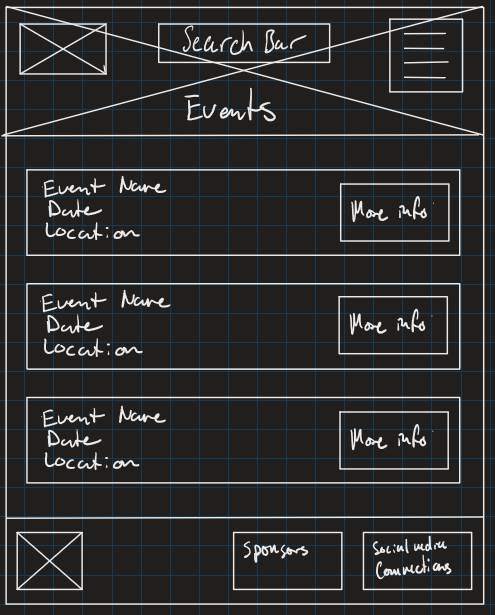 Search Bar
Events
Event Name
Date
Location
More info
Event Name
Date
Location
More info
Event Name
Date
Location
More info
Sponsors
Social media
Connections